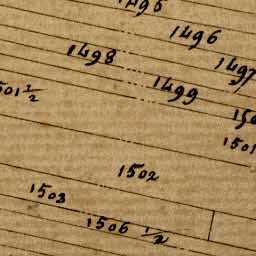 1495
1496
1498
1497
1499
1501
1502
1503
1506 1/2